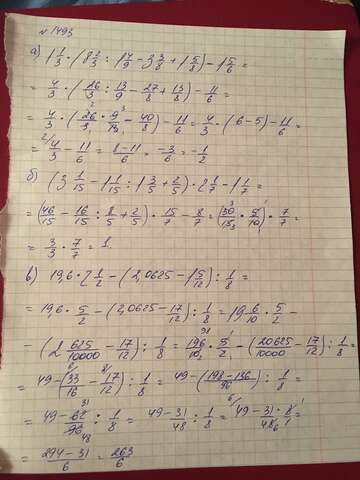 № 1493
а) 1 1/3 · (8 2/3 : 1 4/9 − 3 3/8 + 1 5/8) − 1 5/6 =
= 4/3 · (26/3 : 13/9 − 27/8 + 13/8) − 11/6 =
= 4/3 · (26/3 · 9/13 − 40/8) − 11/6 = 4/3 · (6−5) − 11/6 =
= 4/3 − 11/6 = 8−11/6 = −3/6 = −1/2
б) (3 1/15 − 1 1/15 : 1 3/5 + 2/5) · 2 1/7 − 1 1/7 =
= (46/15 − 16/15 : 8/5 + 2/5) · 15/7 − 8/7 = (30/15 · 5/10) · 7/7 =
= 3/3 · 7/7 = 1.
в) 19,6 · 2 1/2 − (2,0625 − 1 5/12) : 1/8 =
= 19,6 · 5/2 − (2,0625 − 17/12) : 1/8 = 19 6/10 · 5/2 −
− (2 625/10000 − 17/12) : 1/8 = 196/10 · 5/2 − (20625/10000 − 17/12) : 1/8 =
= 49 − (33/16 − 17/12) : 1/8 = 49 − (198−136/96) : 1/8 =
= 49 − 62/96 : 1/8 = 49−31/48 : 1/8 = 49−31/48 · 8/1 =
= 294−31/6 = 263/6